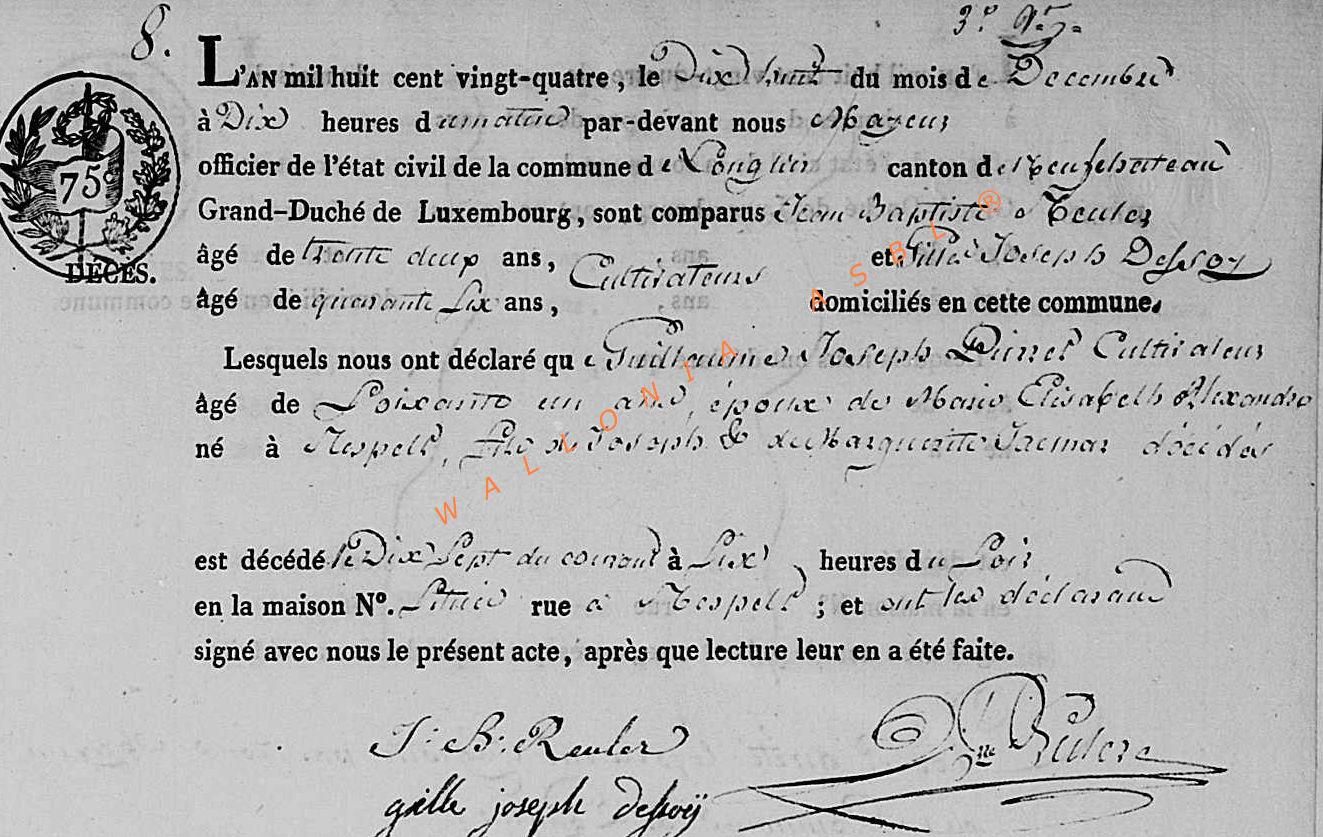 8.
L'AN mil huit cent vingt-quatre, le Dix huit du mois de Decembre
à Dix heures du matin par-devant nous Mayeur
officier de l'état civil de la commune de Longlier canton de Neufchateau
Grand-Duché de Luxembourg, sont comparus Jean Baptiste Reuler
âgé de trente deux ans, et Gille Joseph Dessoy
Cultivateurs
âgé de quarante six ans, domiciliés en cette commune.
75
DÉCÈS.
Lesquels nous ont déclaré que Guillaume Joseph Cultivateur
âgé de Soixante un ans, époux de Marie Elisabeth Alexandre
né à Respelt, fils de Joseph & de Marguerite Jacmar décédés
est décédé le Dix Sept du courant à Six heures du Soir
en la maison Nº. Située rue à Respelt ; et ont les déclarans
signé avec nous le présent acte, après que lecture leur en a été faite.
J: B: Reuler
gille joseph dessoÿ
WALLONIA ASBL ®